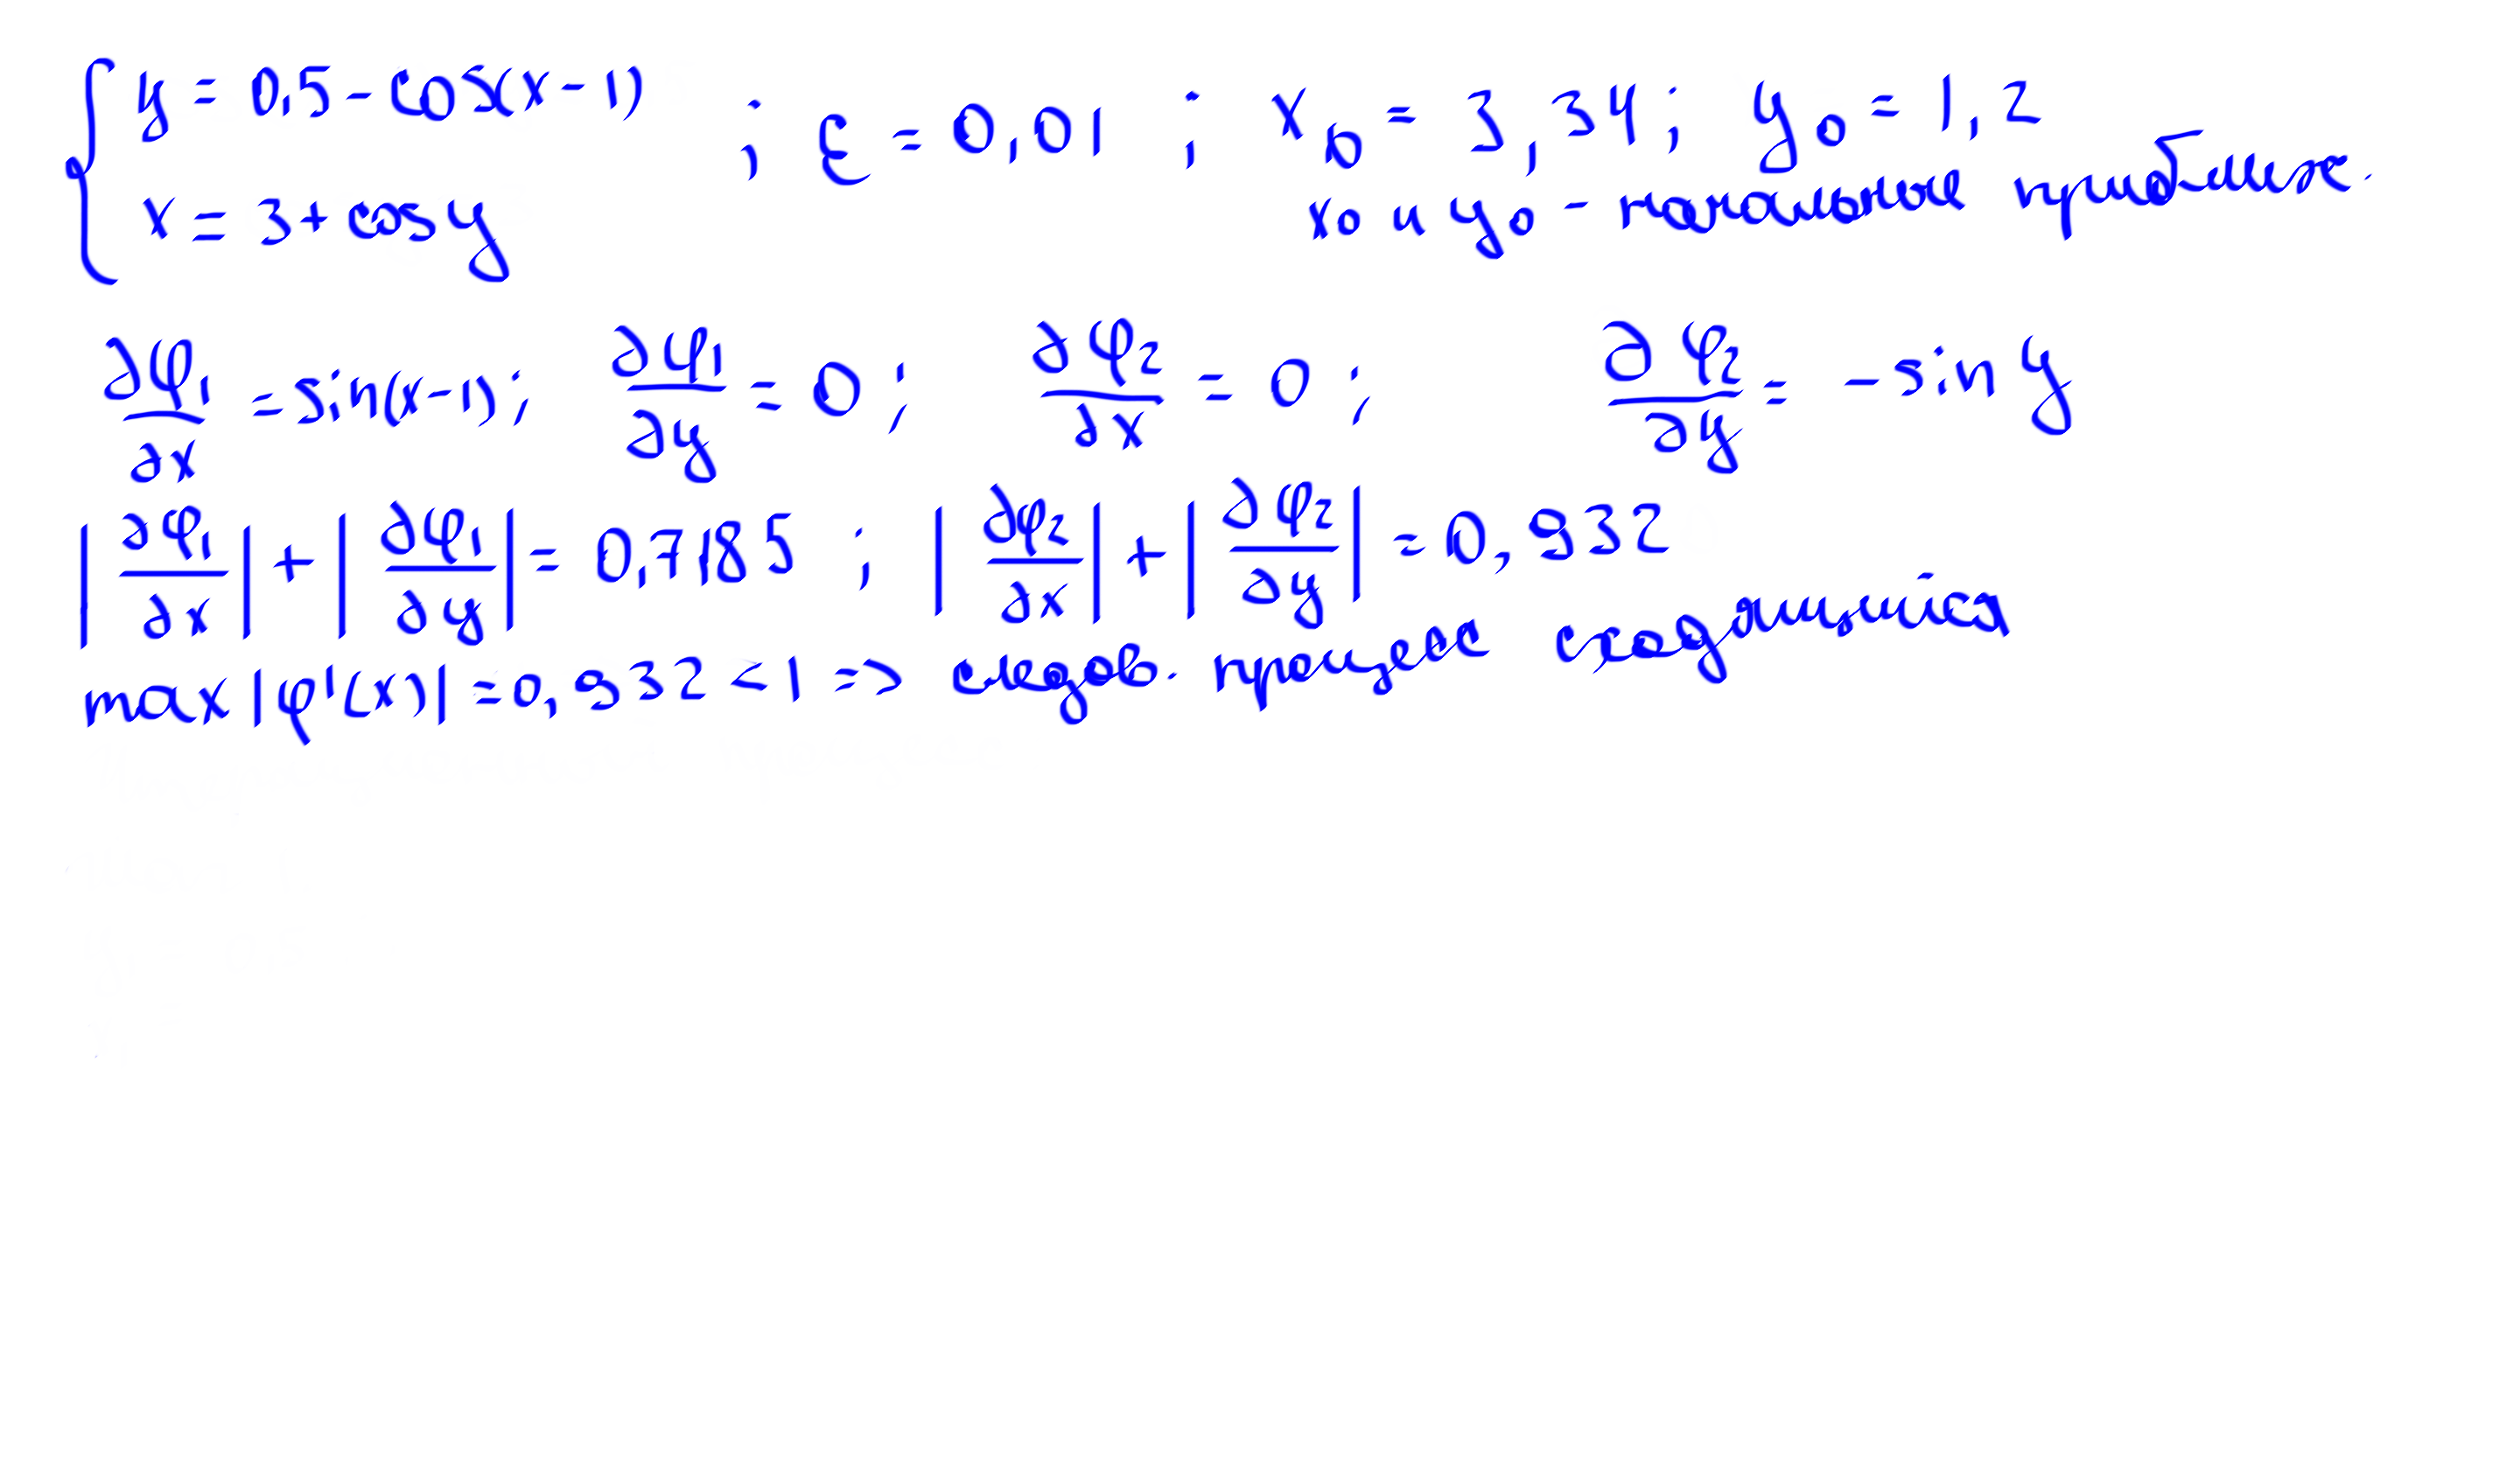 y = 0,5 - cos(x-1) ; ε = 0,01 ; x₀ = 3,34; y₀ = 1,2
x = 3 + cos y x₀ и y₀ - начальные приближ.
∂φ₁/∂x = sin(x-1); ∂φ₁/∂y = 0; ∂φ₂/∂x = 0; ∂φ₂/∂y = -sin y
|∂φ₁/∂x| + |∂φ₁/∂y| = 0,7185 ; |∂φ₂/∂x| + |∂φ₂/∂y| = 0,932
max |φ'(x)| = 0,932 < 1 => следов. процесс сходящийся